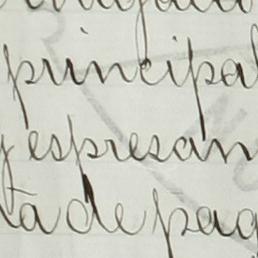 principal
y espresan
ta de pag